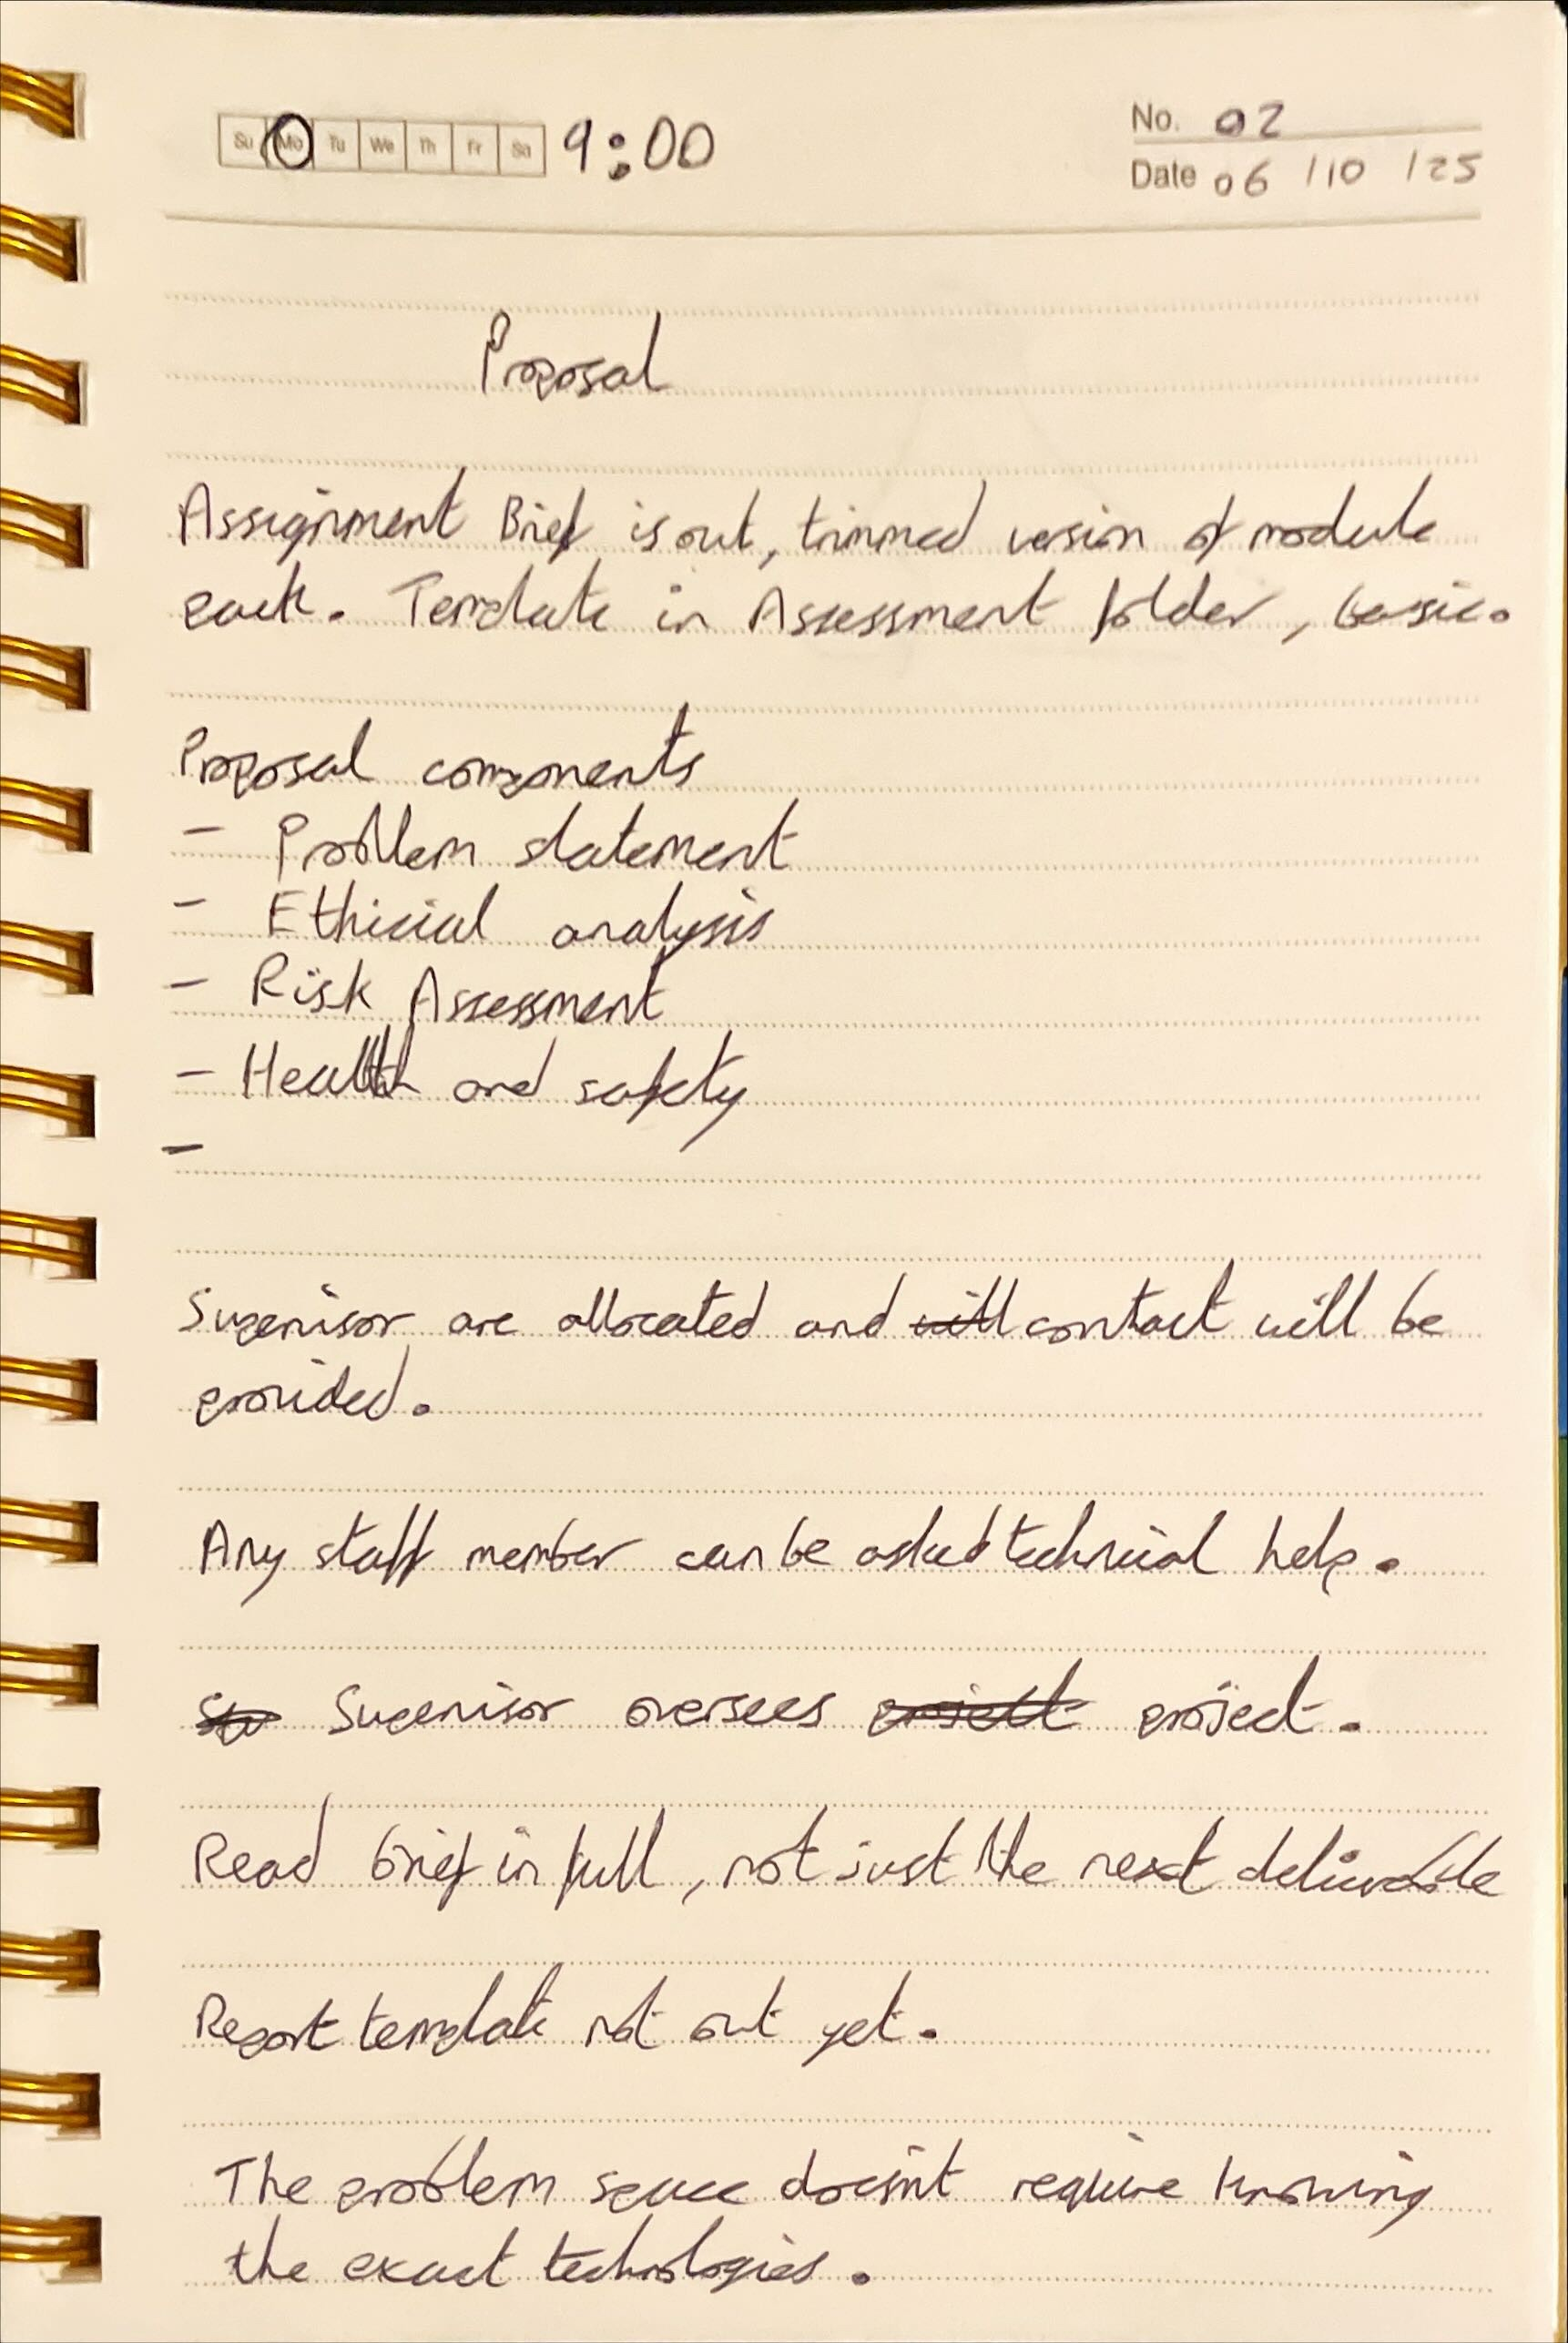 Su Mo Tu We Th Fr Sa 9:00
No. 02
Date 06 / 10 / 25
Proposal
Assignment Brief is out, trimmed version of module
pack. Template in Assessment folder, basic.
Proposal components
- Problem statement
- Ethicial analysis
- Risk Assessment
- Health and safety
-
Supervisor are allocated and will contact will be
provided.
Any staff member can be asked technical help.
Su Supervisor oversees project project.
Read brief in full, not just the next deliverable
Report template not out yet.
The problem space doesn't require knowing
the exact technologies.